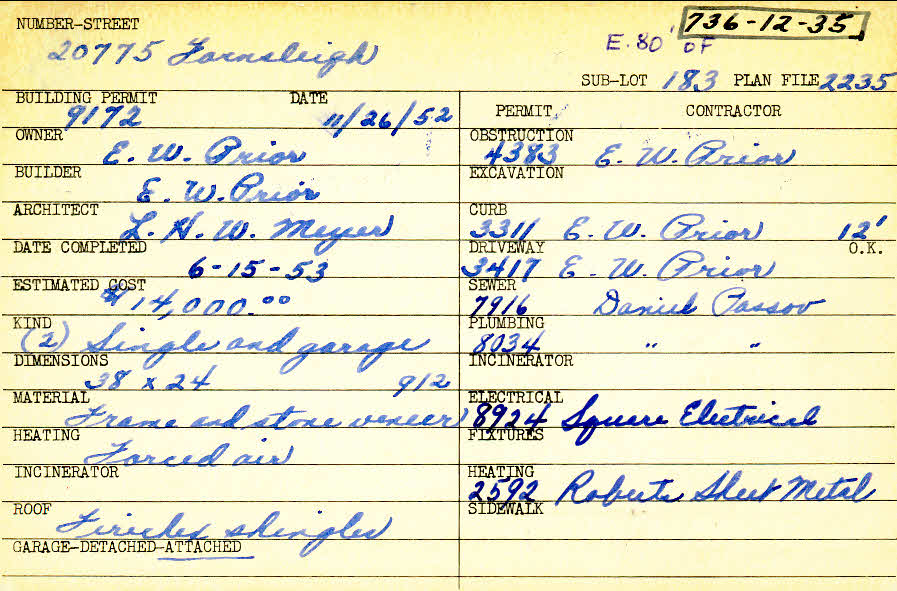 NUMBER-STREET
736-12-35
20775 Farnsleigh
E. 80' OF
SUB-LOT 183 PLAN FILE 2235
BUILDING PERMIT DATE
9172 11/26/52
OWNER
E. W. Prior
BUILDER
E. W. Prior
ARCHITECT
L. H. W. Meyer
DATE COMPLETED
6-15-53
ESTIMATED COST
$14,000.00
KIND
(2) Single and garage
DIMENSIONS
38 x 24 912
MATERIAL
Frame and stone veneer
HEATING
Forced air
INCINERATOR
ROOF
shingles
GARAGE-DETACHED-ATTACHED
PERMIT CONTRACTOR
OBSTRUCTION
4383 E. W. Prior
EXCAVATION
CURB
3311 E. W. Prior 12'
DRIVEWAY O.K.
3417 E. W. Prior
SEWER
7916 Daniel Passov
PLUMBING
8034 " "
INCINERATOR
ELECTRICAL
8924 Square Electrical
FIXTURES
HEATING
2592 Roberts Sheet Metal
SIDEWALK